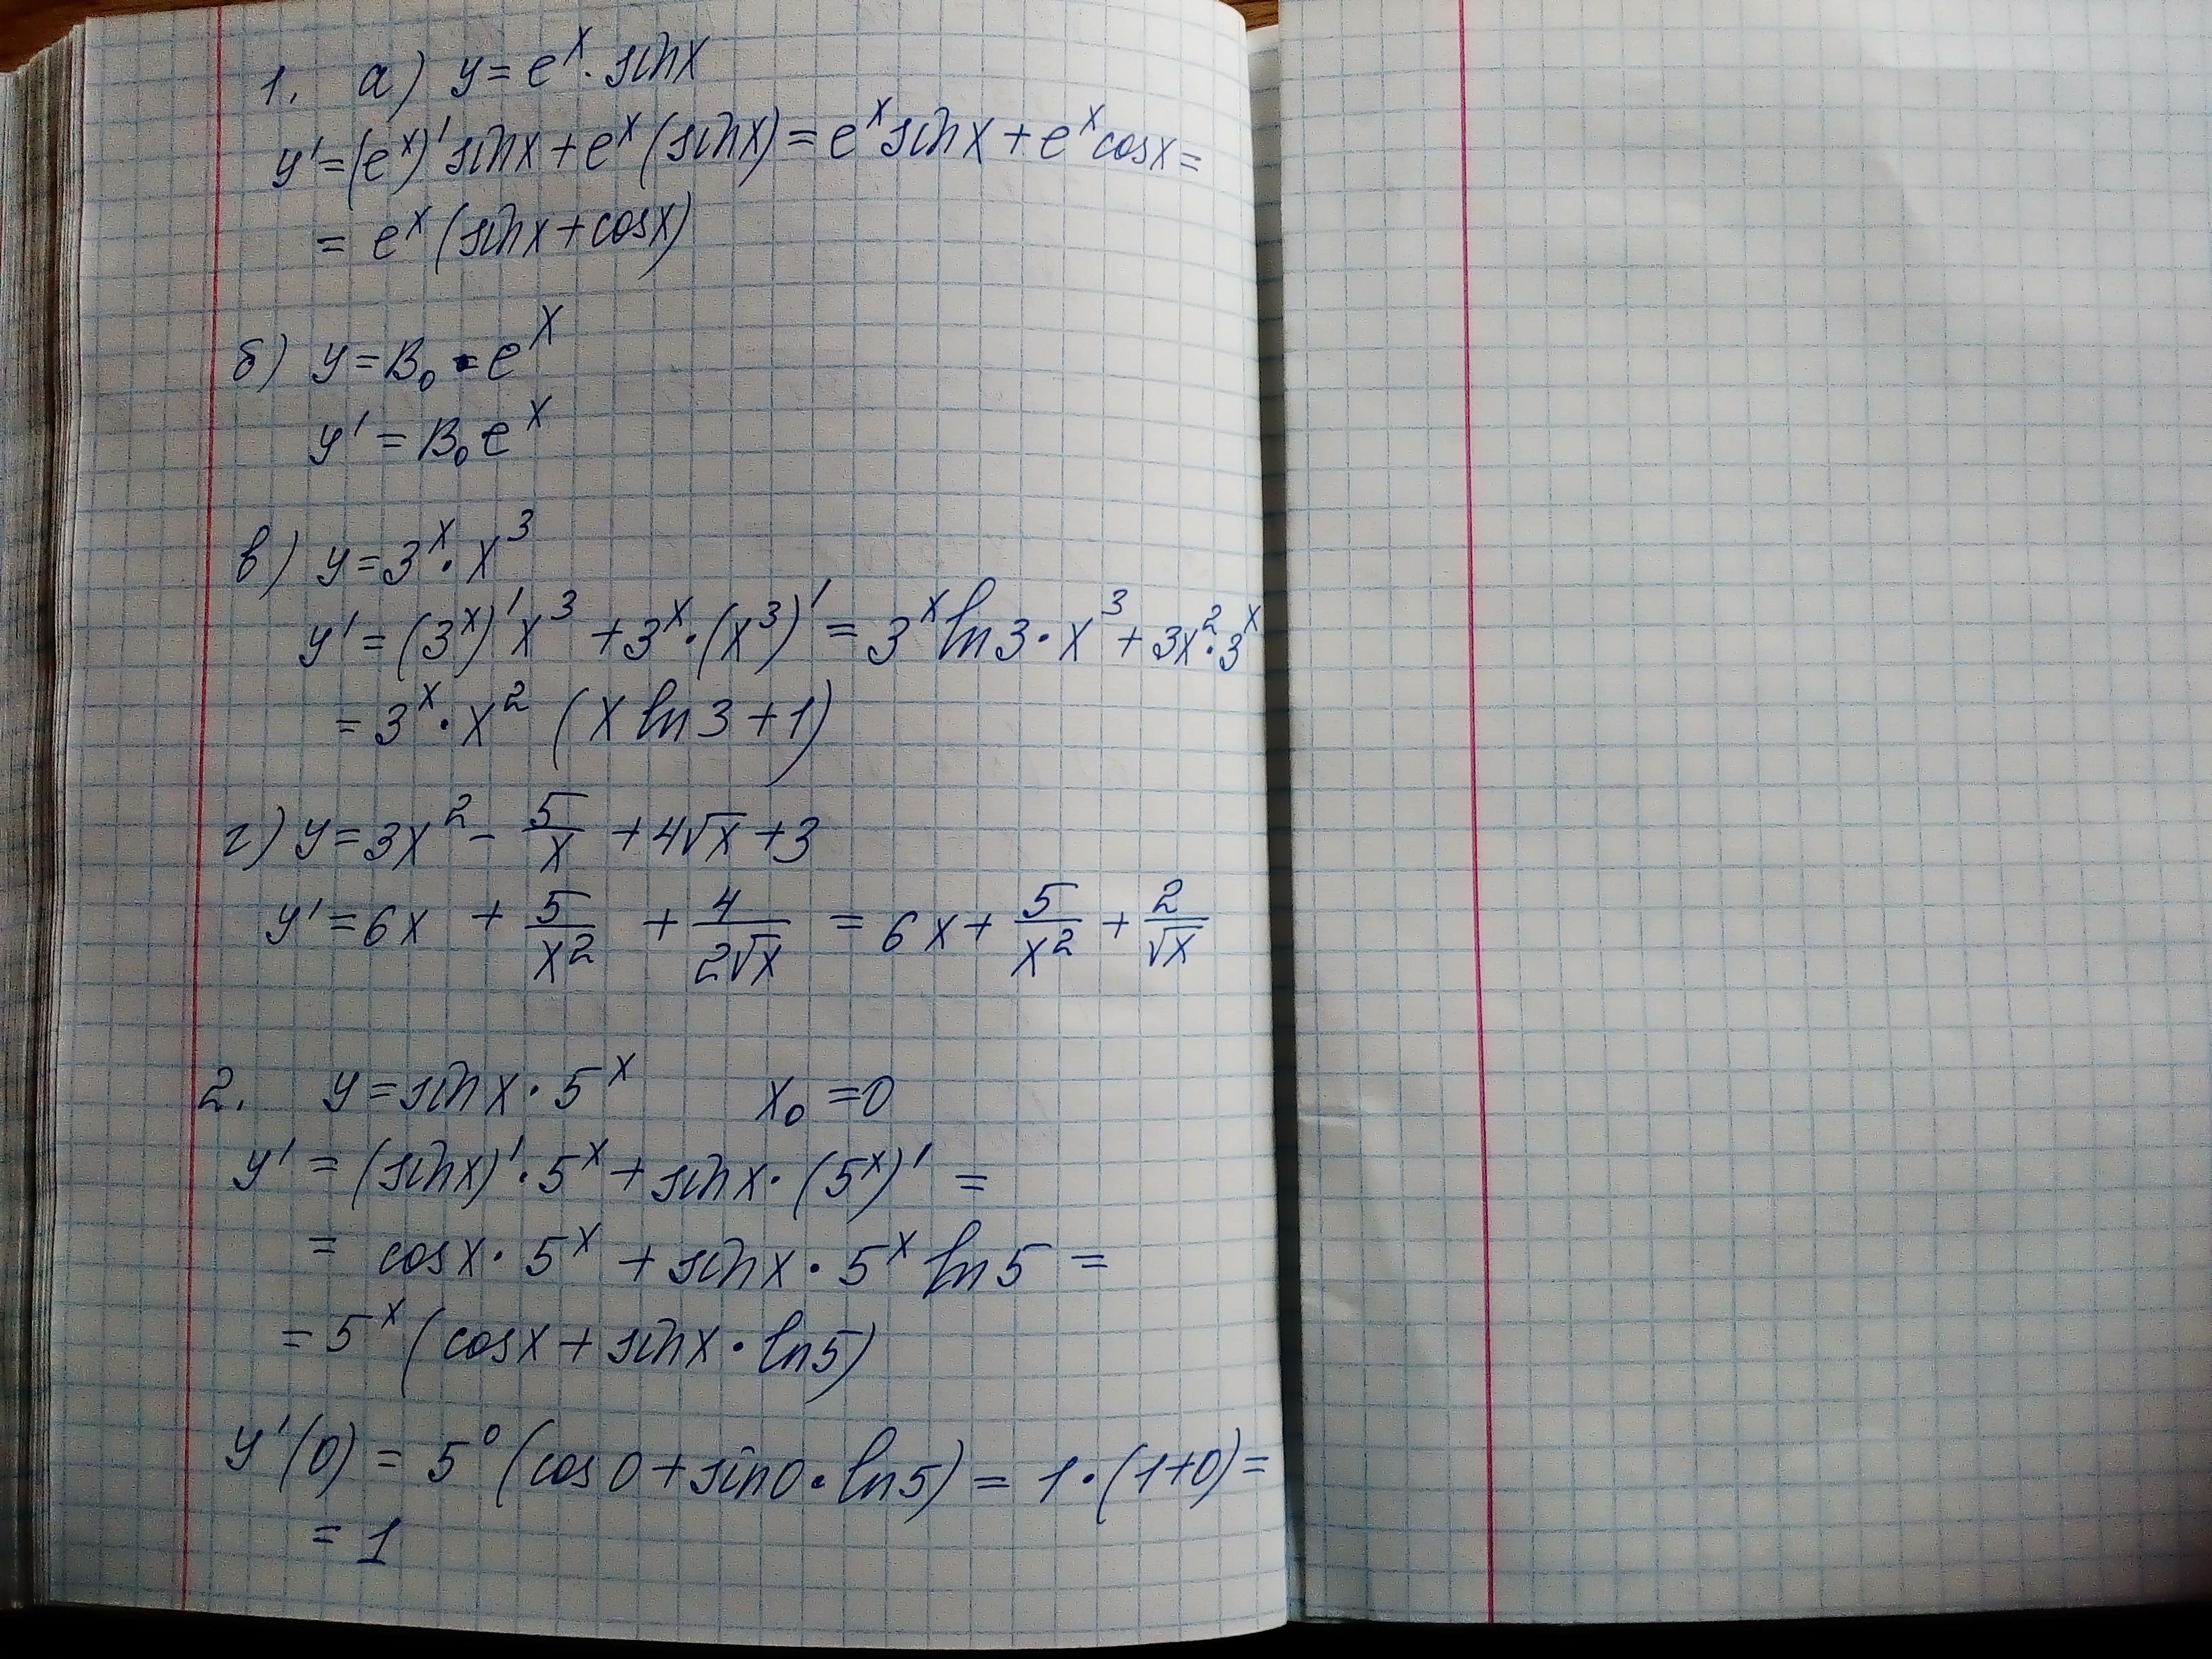 1. а) y = e^x · sinx
y' = (e^x)' sinx + e^x (sinx) = e^x sinx + e^x cosx =
= e^x (sinx + cosx)
б) y = B₀ · e^x
y' = B₀ e^x
в) y = 3^x · x^3
y' = (3^x)' x^3 + 3^x · (x^3)' = 3^x ln3 · x^3 + 3x^2 · 3^x
= 3^x · x^2 (x ln3 + 1)
г) y = 3x^2 - 5/x + 4√x + 3
y' = 6x + 5/x^2 + 4/(2√x) = 6x + 5/x^2 + 2/√x
2. y = sinx · 5^x x₀ = 0
y' = (sinx)' · 5^x + sinx · (5^x)' =
= cosx · 5^x + sinx · 5^x ln5 =
= 5^x (cosx + sinx · ln5)
y'(0) = 5^0 (cos0 + sin0 · ln5) = 1 · (1+0) =
= 1